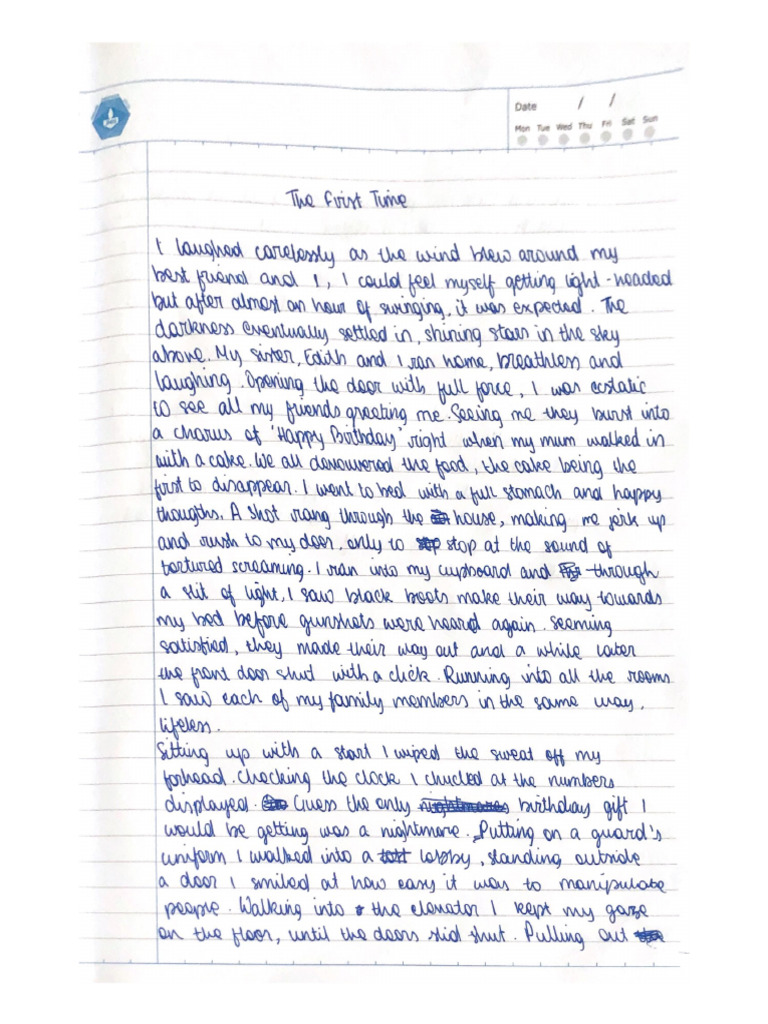 Date / /
Mon Tue Wed Thu Fri Sat Sun
The First Time
I laughed carelessly as the wind blew around my
best friend and I, I could feel myself getting light-headed
but after almost an hour of swinging, it was expected. The
darkness eventually settled in, shining stars in the sky
above. My sister, Edith and I ran home, breathless and
laughing. Opening the door with full force, I was ecstatic
to see all my friends greeting me. Seeing me they burst into
a chorus of 'Happy Birthday' right when my mum walked in
with a cake. We all devoured the food, the cake being the
first to disappear. I went to bed with a full stomach and happy
thougths. A shot rang through the house, making me jerk up
and rush to my door, only to stop at the sound of
tortured screaming. I ran into my cupboard and through
a slit of light, I saw black boots make their way towards
my bed before gunshots were heard again. Seeming
satisfied, they made their way out and a while later
the front door shut with a click. Running into all the rooms
I saw each of my family members in the same way,
lifeless.
Sitting up with a start I wiped the sweat off my
forhead. Checking the clock I chucled at the numbers
displayed. Guess the only nightmares birthday gift I
would be getting was a nightmare. Putting on a guard's
uniform I walked into a lobby, standing outside
a door I smiled at how easy it was to manipulate
people. Walking into the elevator I kept my gaze
on the floor, until the doors slid shut. Pulling out